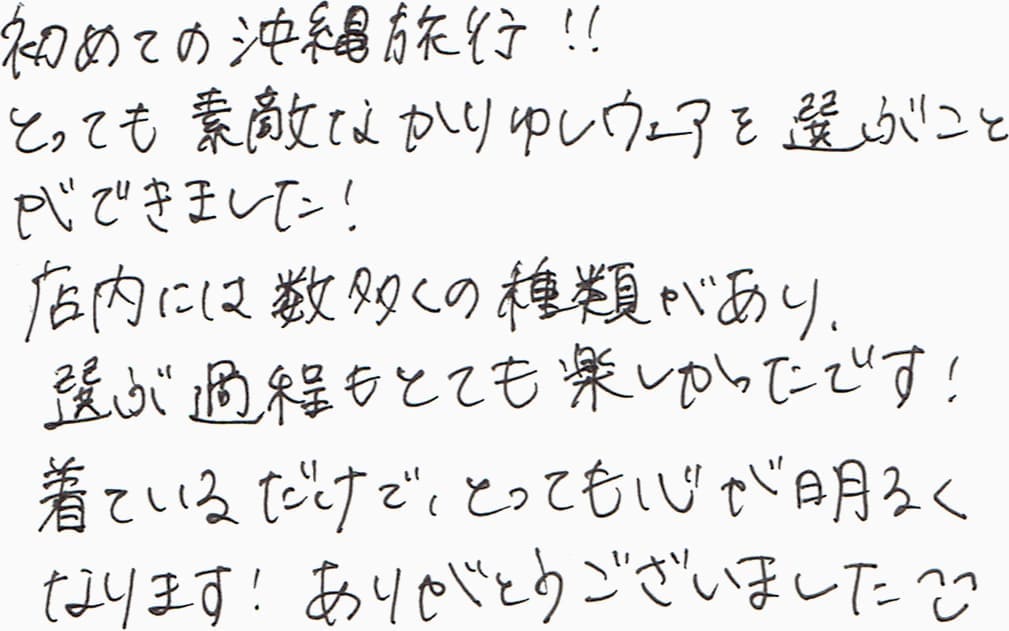 初めての沖縄旅行!!
とっても素敵なかりゆしウェアを選ぶこと
ができました!
店内には数多くの種類があり、
選ぶ過程もとても楽しかったです!
着ているだけで、とっても心が明るく
なります! ありがとうございました